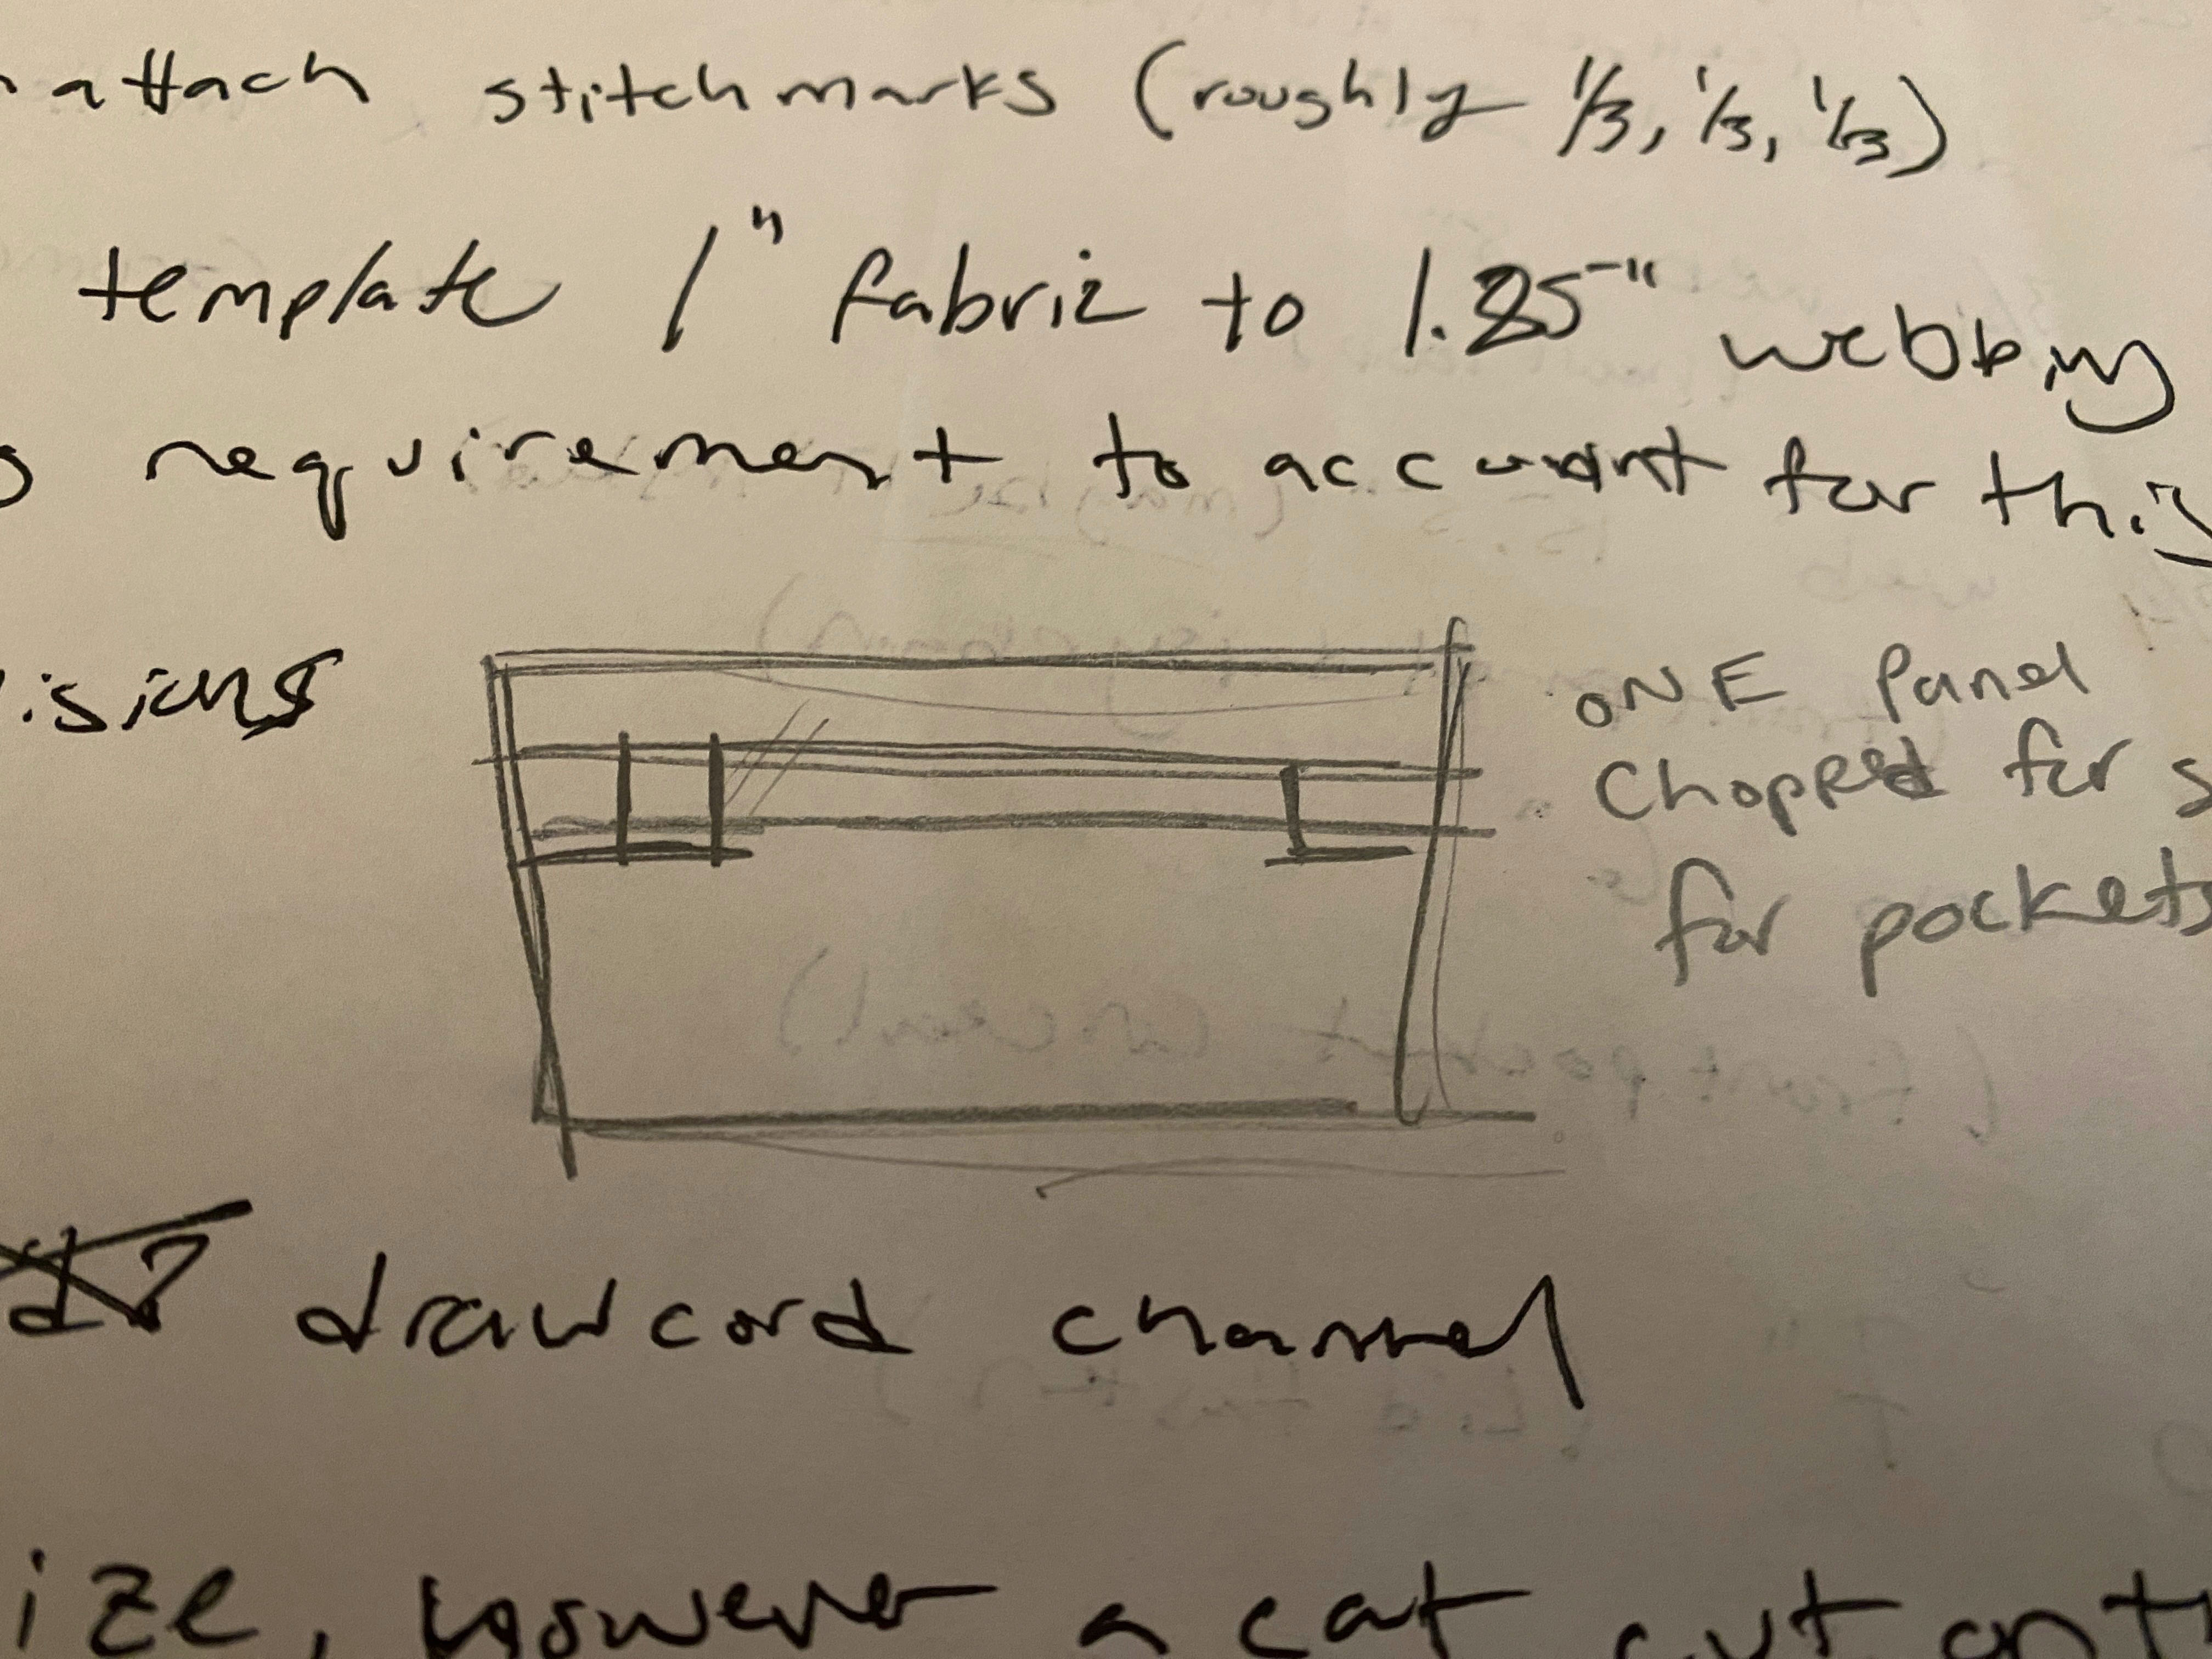 attach stitchmarks (roughly 1/3, 1/3, 1/3)
template 1" fabric to 1.25" webbing
requirement to account for this
isions
ONE Panel
Chopped for s
for pockets
d? drawcord channel
ize, however a cat cut ont